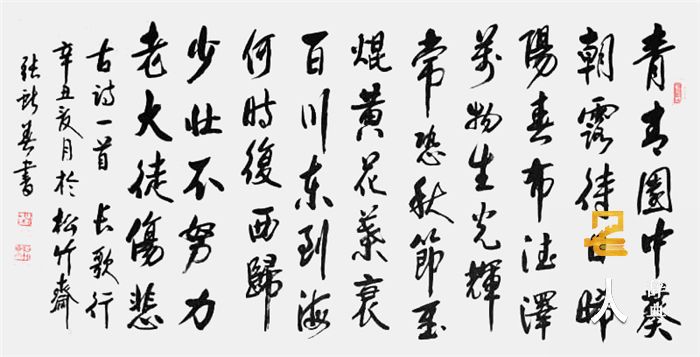 青青園中葵
朝露待日晞
陽春布德澤
萬物生光輝
常恐秋節至
焜黄花葉衰
百川東到海
何時復西歸
少壯不努力
老大徒傷悲
古詩一首 長歌行
辛丑夏月於松竹齋
張新書
人